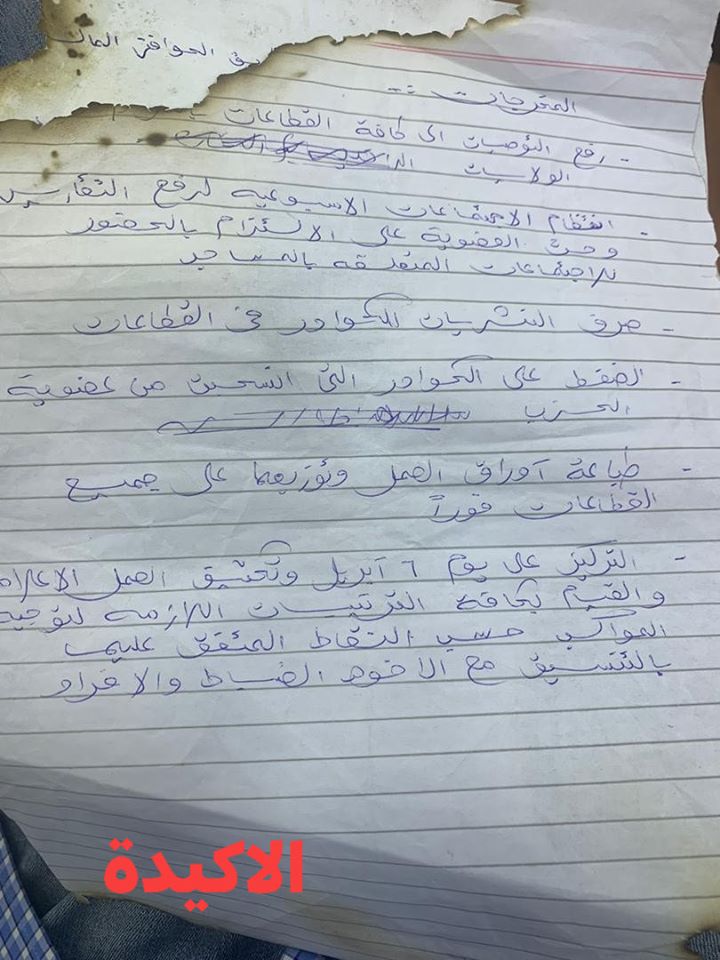 الحوافز المال
المخرجات :-
- رفع التوصيات الى كافة القطاعات
الولايات
- انتظام الاجتماعات الاسبوعيه لرفع التقارير
وحث العضوية على الالتزام بالحضور
للاجتماعات المتعلقه بالمساجد
- صرف النثريات للكوادر فى القطاعات
- الضغط على الكوادر التى انسحبت من عضوية
الحزب
- طباعة أوراق العمل وتوزيعها على جميع
القطاعات فوراً
- التركيز على يوم ٦ أبريل وتكثيف العمل
والقيام بكافة الترتيبات اللازمه لتوجيه
المواكب حسب النقاط المتفق عليها
بالتنسيق مع الاخوه الضباط والافراد
الاكيدة